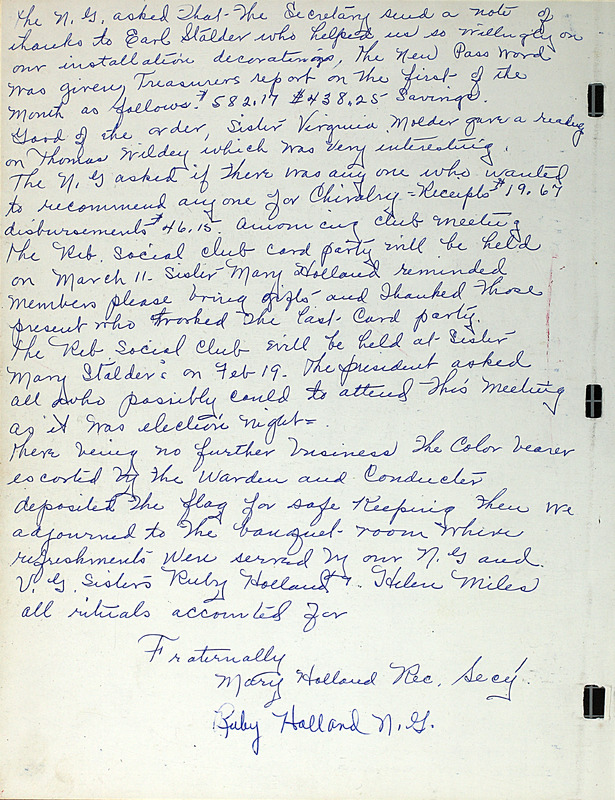 The N. G. asked That The Secretary send a note of
thanks to Earl Stalder who helped us so willingly on
our installation decoratings, The New Pass Word
was given, Treasurers report on The first of the
Month as follows: $582.17 $438.25 Savings.
Good of the order, Sister Virginia Molder gave a reading
on Thomas Wildey which was very interesting.
The N. G asked if There was any one who wanted
to recommend any one for Chivalry = Receipts $19.67
disbursements $46.15. announcing club meeting
The Reb. Social club card party will be held
on March 11. Sister Mary Holland reminded
members please bring gifts and Thanked Those
present who worked The last Card party.
The Reb Social Club will be held at Sister
Mary Stalder's on Feb 19. The president asked
all who possibly could to attend This Meeting
as it was election night =
There being no further business The Color bearer
escorted by The Warden and Conductor
deposited The flag for safe Keeping Then we
adjourned to The banquet room where
refreshments were served by our N. G and
V. G. Sisters Ruby Holland & Helen Miles
all rituals accounted for
Fraternally
Mary Holland Rec. Secy.
Ruby Holland N. G.